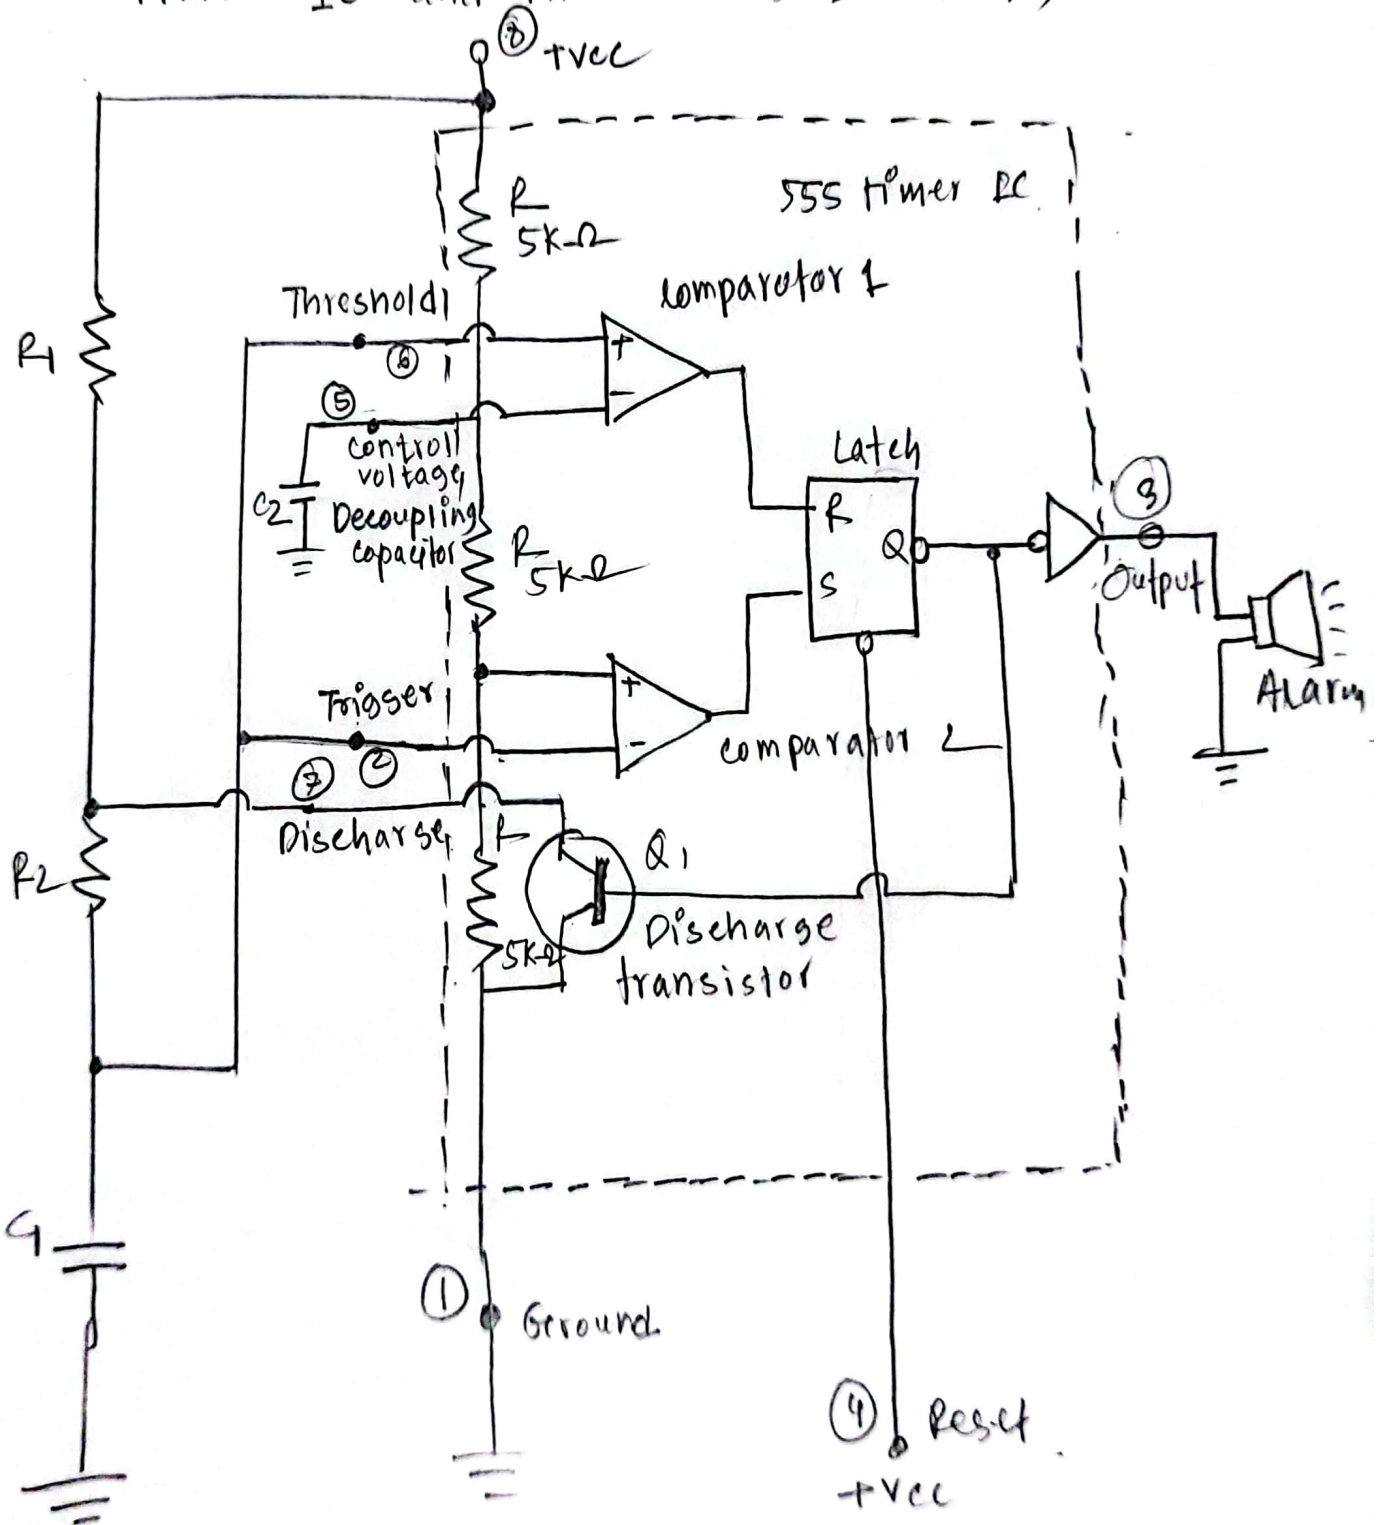 ⑧ +Vcc
555 timer IC
R
5KΩ
Threshold
Comparotor 1
R1
⑥
+
⑤
-
Controll
voltage
C2
Decoupling
capacitor
Latch
R
5KΩ
R
Q
S
③
Output
Alarm
Trigger
+
②
-
Comparator 2
⑦
Discharge
R
R2
Q1
5KΩ
Discharge
transistor
C1
①
Geround
④ Reset
+Vcc